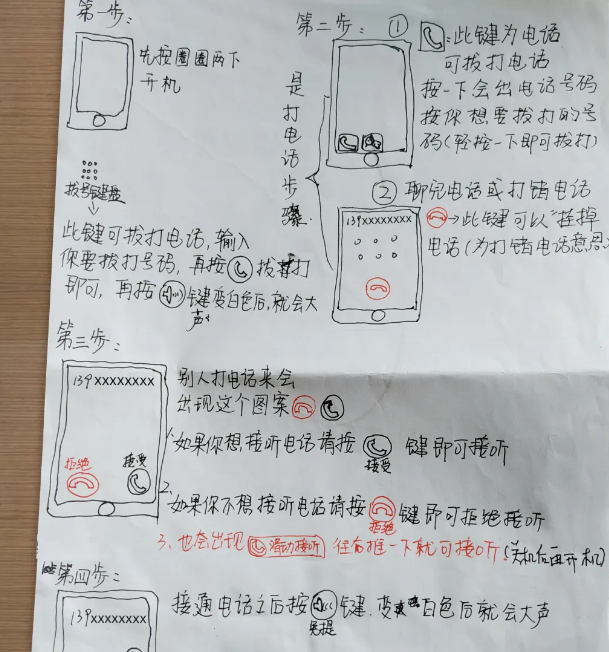 第一步：
先按圈圈两下
开机
拔号键盘
此键可拔打电话，输入
你要拔打号码，再按拔打
即可，再按键变白色后，就会大
声
第二步：①
是打电话步骤.
：此键为电话
可拔打电话
按一下会出电话号码
按你想要拔打的号
码(轻按一下即可拔打)
② 聊完电话或打错电话
139xxxxxxxx
→此键可以"挂掉
电话(为打错电话意思
第三步：
139xxxxxxxx
拒绝
接受
别人打电话来会
出现这个图案
1如果你想接听电话请按键即可接听
接受
2、如果你不想接听电话请按键即可拒绝接听
拒绝
3、也会出现滑动接听往右推一下就可接听(关机后再开机)
第四步：
139xxxxxxxx
接通电话之后按键.变白色后就会大声
免提